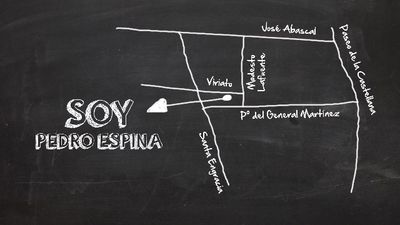 José Abascal
Paseo de la Castellana
Modesto
Lafuente
Viriato
SOY
PEDRO ESPINA
Pº del General Martínez
Santa Engracia